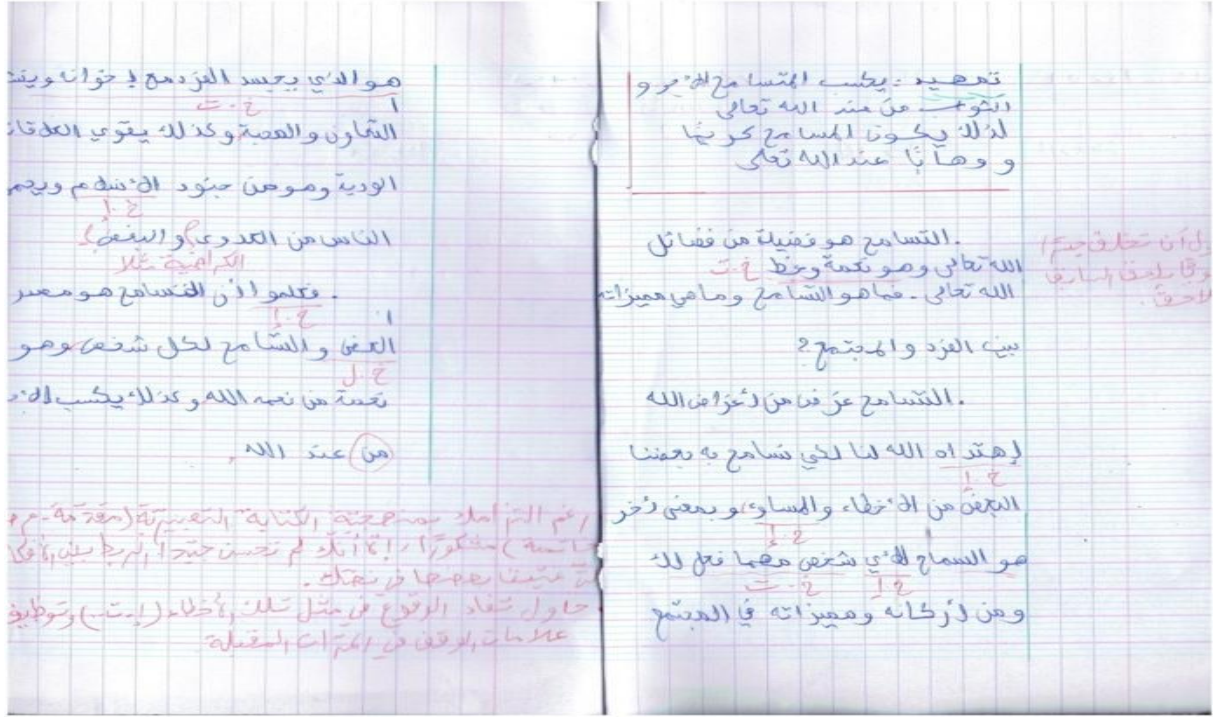 تمهيد : يكسب المتسامح الأجر و
الثوب من عند الله تعالى
لذلك يكون المسامح كريمًا
و وهابًا عند الله تعلى
.التسامح هو فضيلة من فضائل
الله تعالى وهو نعمة وخط خ.ت
الله تعالى . فماهو التسامح وماهي مميزاته
بين الفرد والمجتمع؟
.التسامح عرفنا من أعراض الله
إهتداه الله لنا لكي نسامح به بعضنا
خ.إ
البعض من الأخطاء والمساوئ وبمعنى أخر
خ.إ
هو السماح لأي شخص مهما فعل لك
خ.إ خ.ت
ومن أركانه ومميزاته في المجتمع
حاول أن
السابق
هو الذي يجسد الفرد مع إخوانه
ا خ.ت
التعاون والمحبة وكذلك يقوي
الودية وهو من جنود الأسلام
خ.إ
الناس من العدوى والبغض
الكراهية مثلا
. فعلموا أن التسامح هو
ا خ.إ
العفى والتسامح لكل شخص وهو
خ.ل
نعمة من نعمه الله وكذلك يكسب
من عند الله.
رغم التزامك بمنهجية الكتابة التعبيرية (مقدمة - ع -
خاتمة) مشكورًا، إلا أنك لم تحسن جيدا الربط بين
بعضها في نصك.
حاول تفاد الوقوع في مثل تلك الأخطاء (إ-ت-) وتوظيف
علامات الوقف في المرات المقبلة